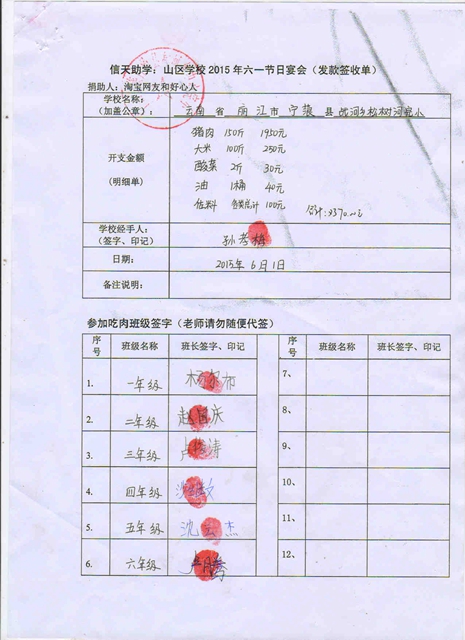 信天助学：山区学校2015年六一节日宴会（发款签收单）
捐助人：淘宝网友和好心人
学校名称：
（加盖公章）： 云南 省 丽江市 宁蒗 县 战河乡 树河完小
开支金额
（明细单）
猪肉 150斤 1950元
大米 100斤 250元
酸菜 2斤 30元
油 1桶 40元
佐料 各类总计 100元
学校经手人：
（签字、印记）
孙考梅
日期：
2015年6月1日
备注说明：
参加吃肉班级签字（老师请勿随便代签）
序号 班级名称 班长签字、印记 序号 班级名称 班长签字、印记
1. 一年级 7、
2. 二年级 赵国庆 8、
3. 三年级 9、
4. 四年级 10、
5. 五年级 沈云杰 11、
6. 六年级 12、